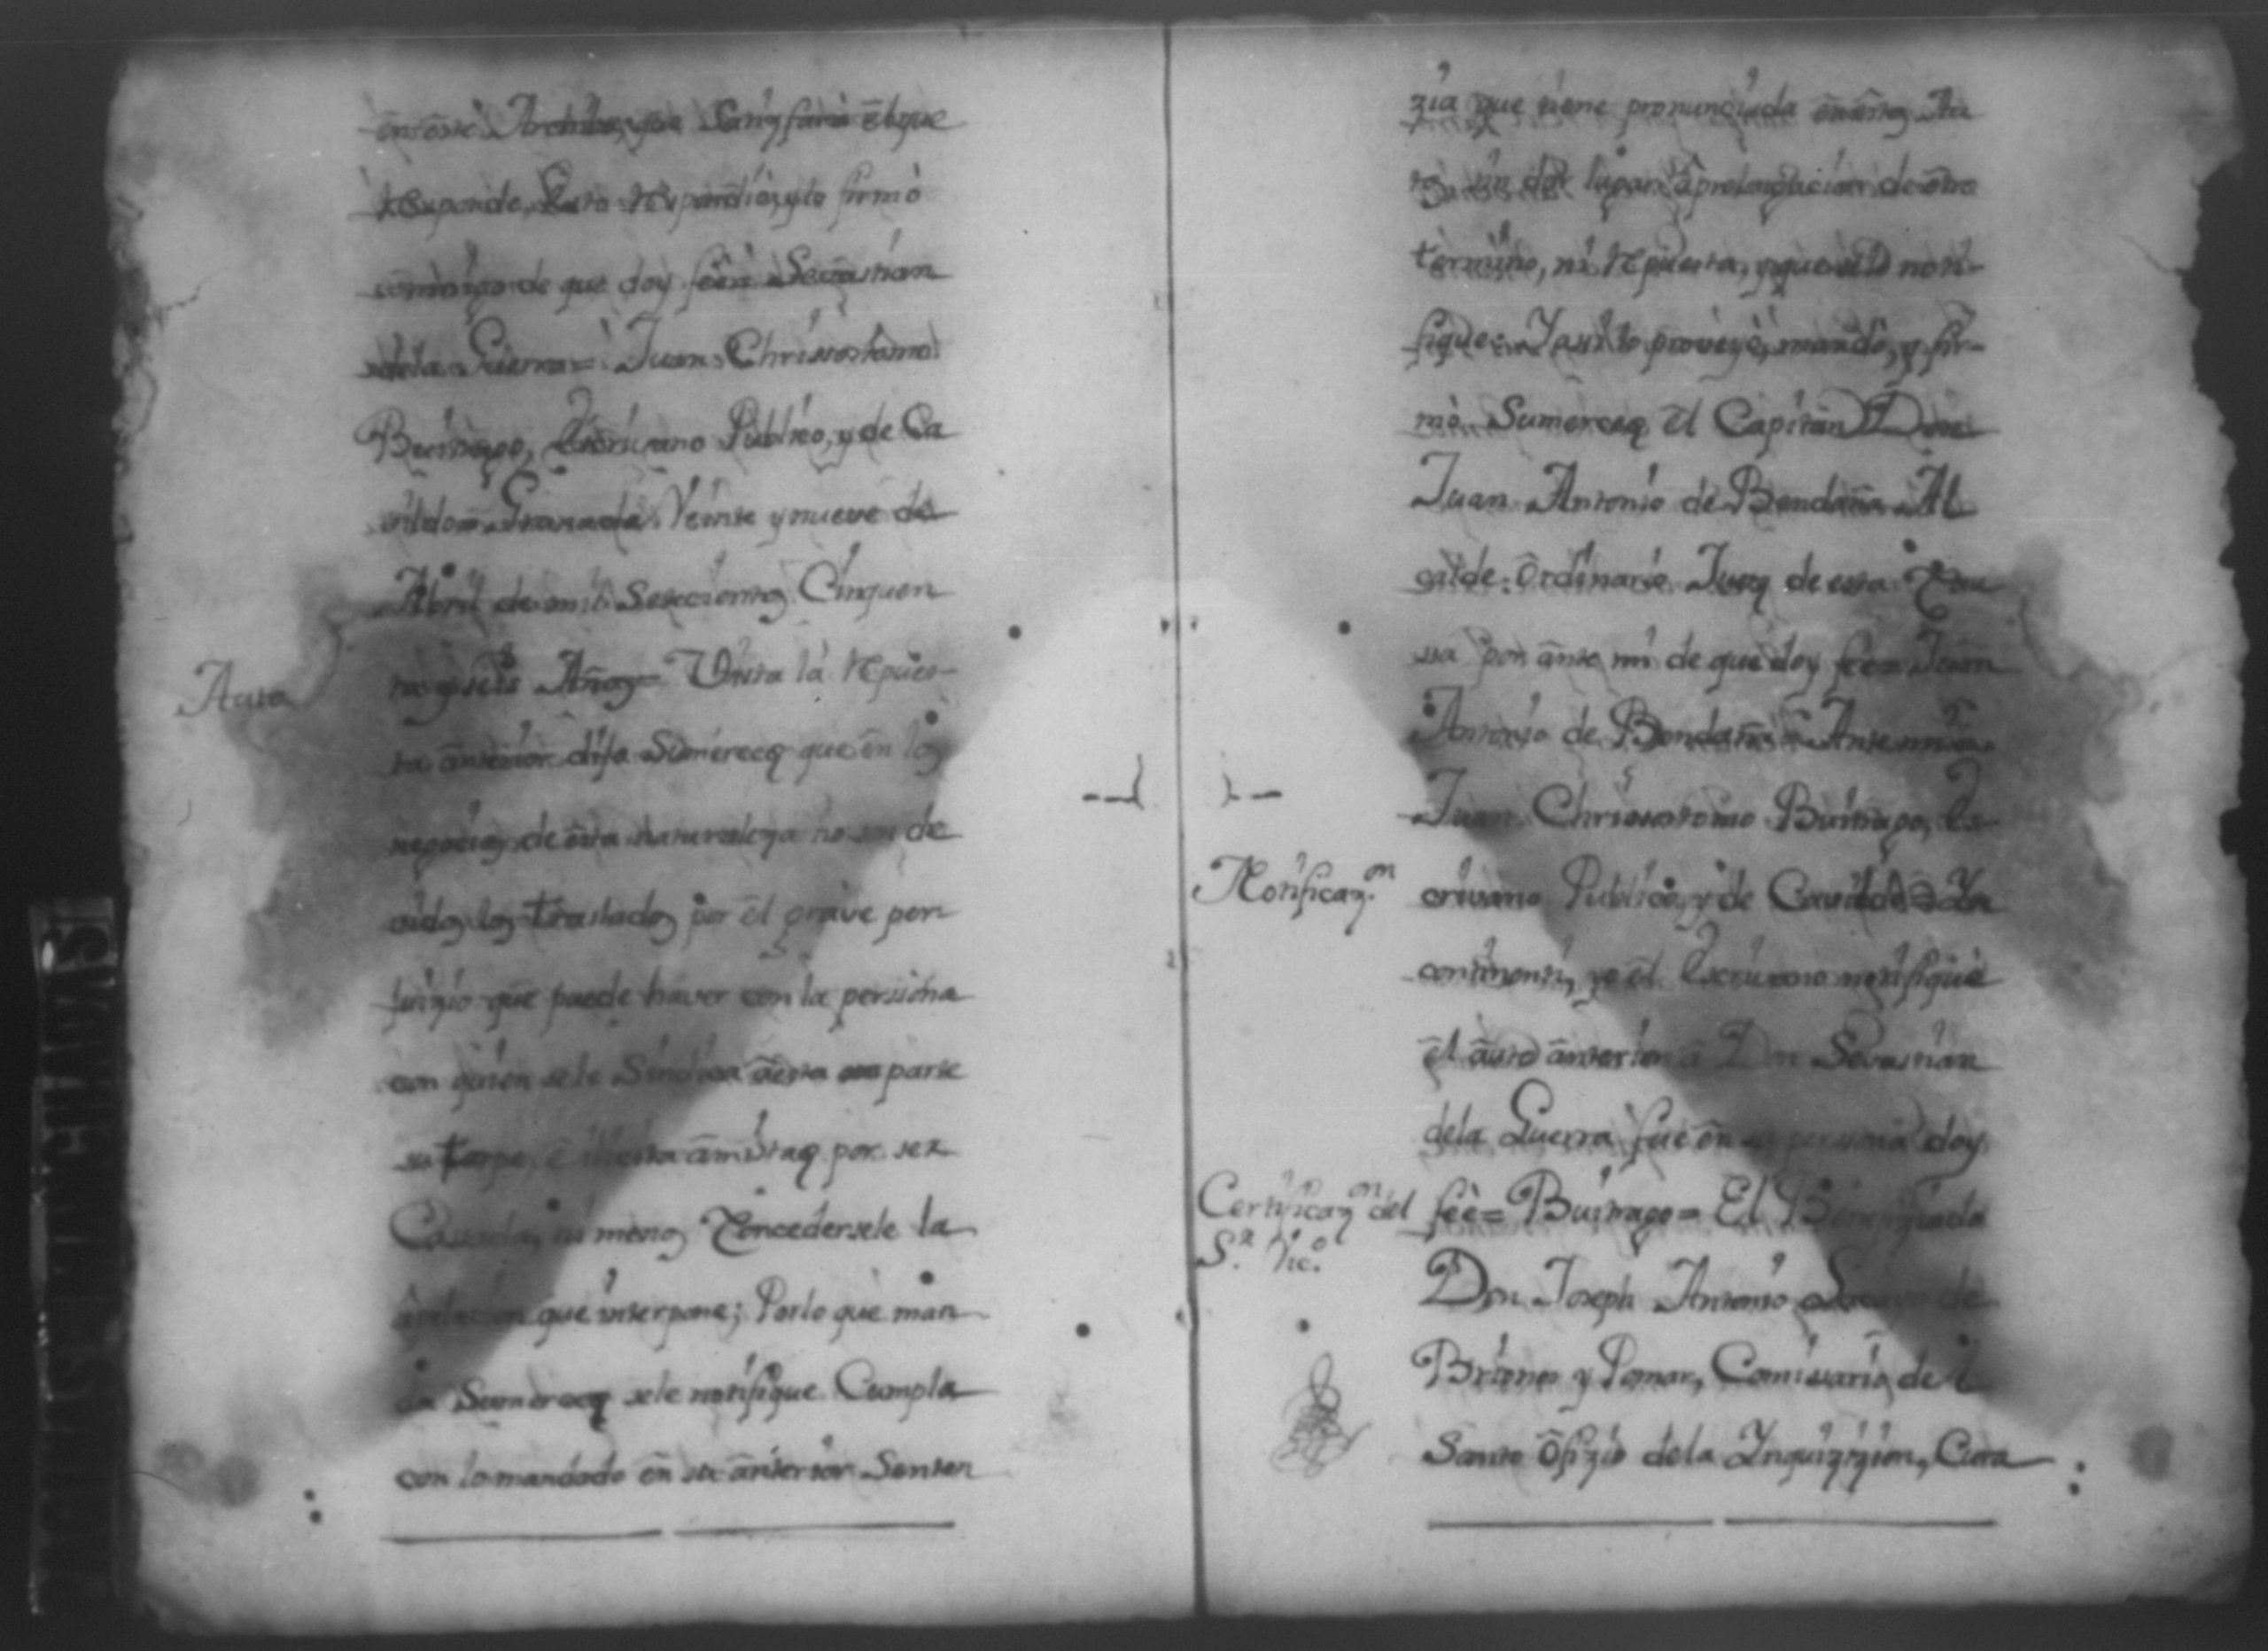 en este Archibo, que Satisfará el que
responde, Esto respondió, y lo firmó
conmigo de que doy feè= Sevastian
dela Guerra= Juan Chrisostomo
Buitrago, Escrivano Publico, y de Ca
vildo= Granada Veinte y nueve de
Abril de mil Setecientos Cinquen
Auto
ta y seis Años= Vista la repues-
ta anterior dijo Sumerced que en los
negocios de esta naturaleza no son de
vidos los traslados por el grave per
juizio que puede haver con la persona
con quien se le Sindica a esta parte
su torpe, e illicita amistad por ser
Casada, ni menos Concedersele la
apelacion que interpone; Por lo que man
da Sumerced sele notifique Cumpla
con lo mandado en su anterior Senten
zia que tiene pronunciada en estos Au
tos, sin dar lugar a prolongacion de otro
termino, ni repuesta, y que se le noti-
fique: Y assi lo proveyó, mandó, y fir-
mó Sumerced el Capitan Don
Juan Antonio de Bendaña Al
calde Ordinario Juez de esta Cau
sa por ante mi de que doy feè= Juan
Antonio de Bendaña= Ante mi=
Juan Chrisostomo Buitrago, Es-
Notificaz.on
crivano Publico, y de Cavildo= Yn
continenti, yo el Escrivano notifiqué
el auto anterior a Don Sevastian
dela Guerra fue en su persona doy
Certificaz.on del
S.r Vic.o
feè= Buitrago= El Beneficiado
Don Joseph Antonio de
Briones y Pomar, Comissario del
Santo Ofizio dela Ynquizizion, Cura